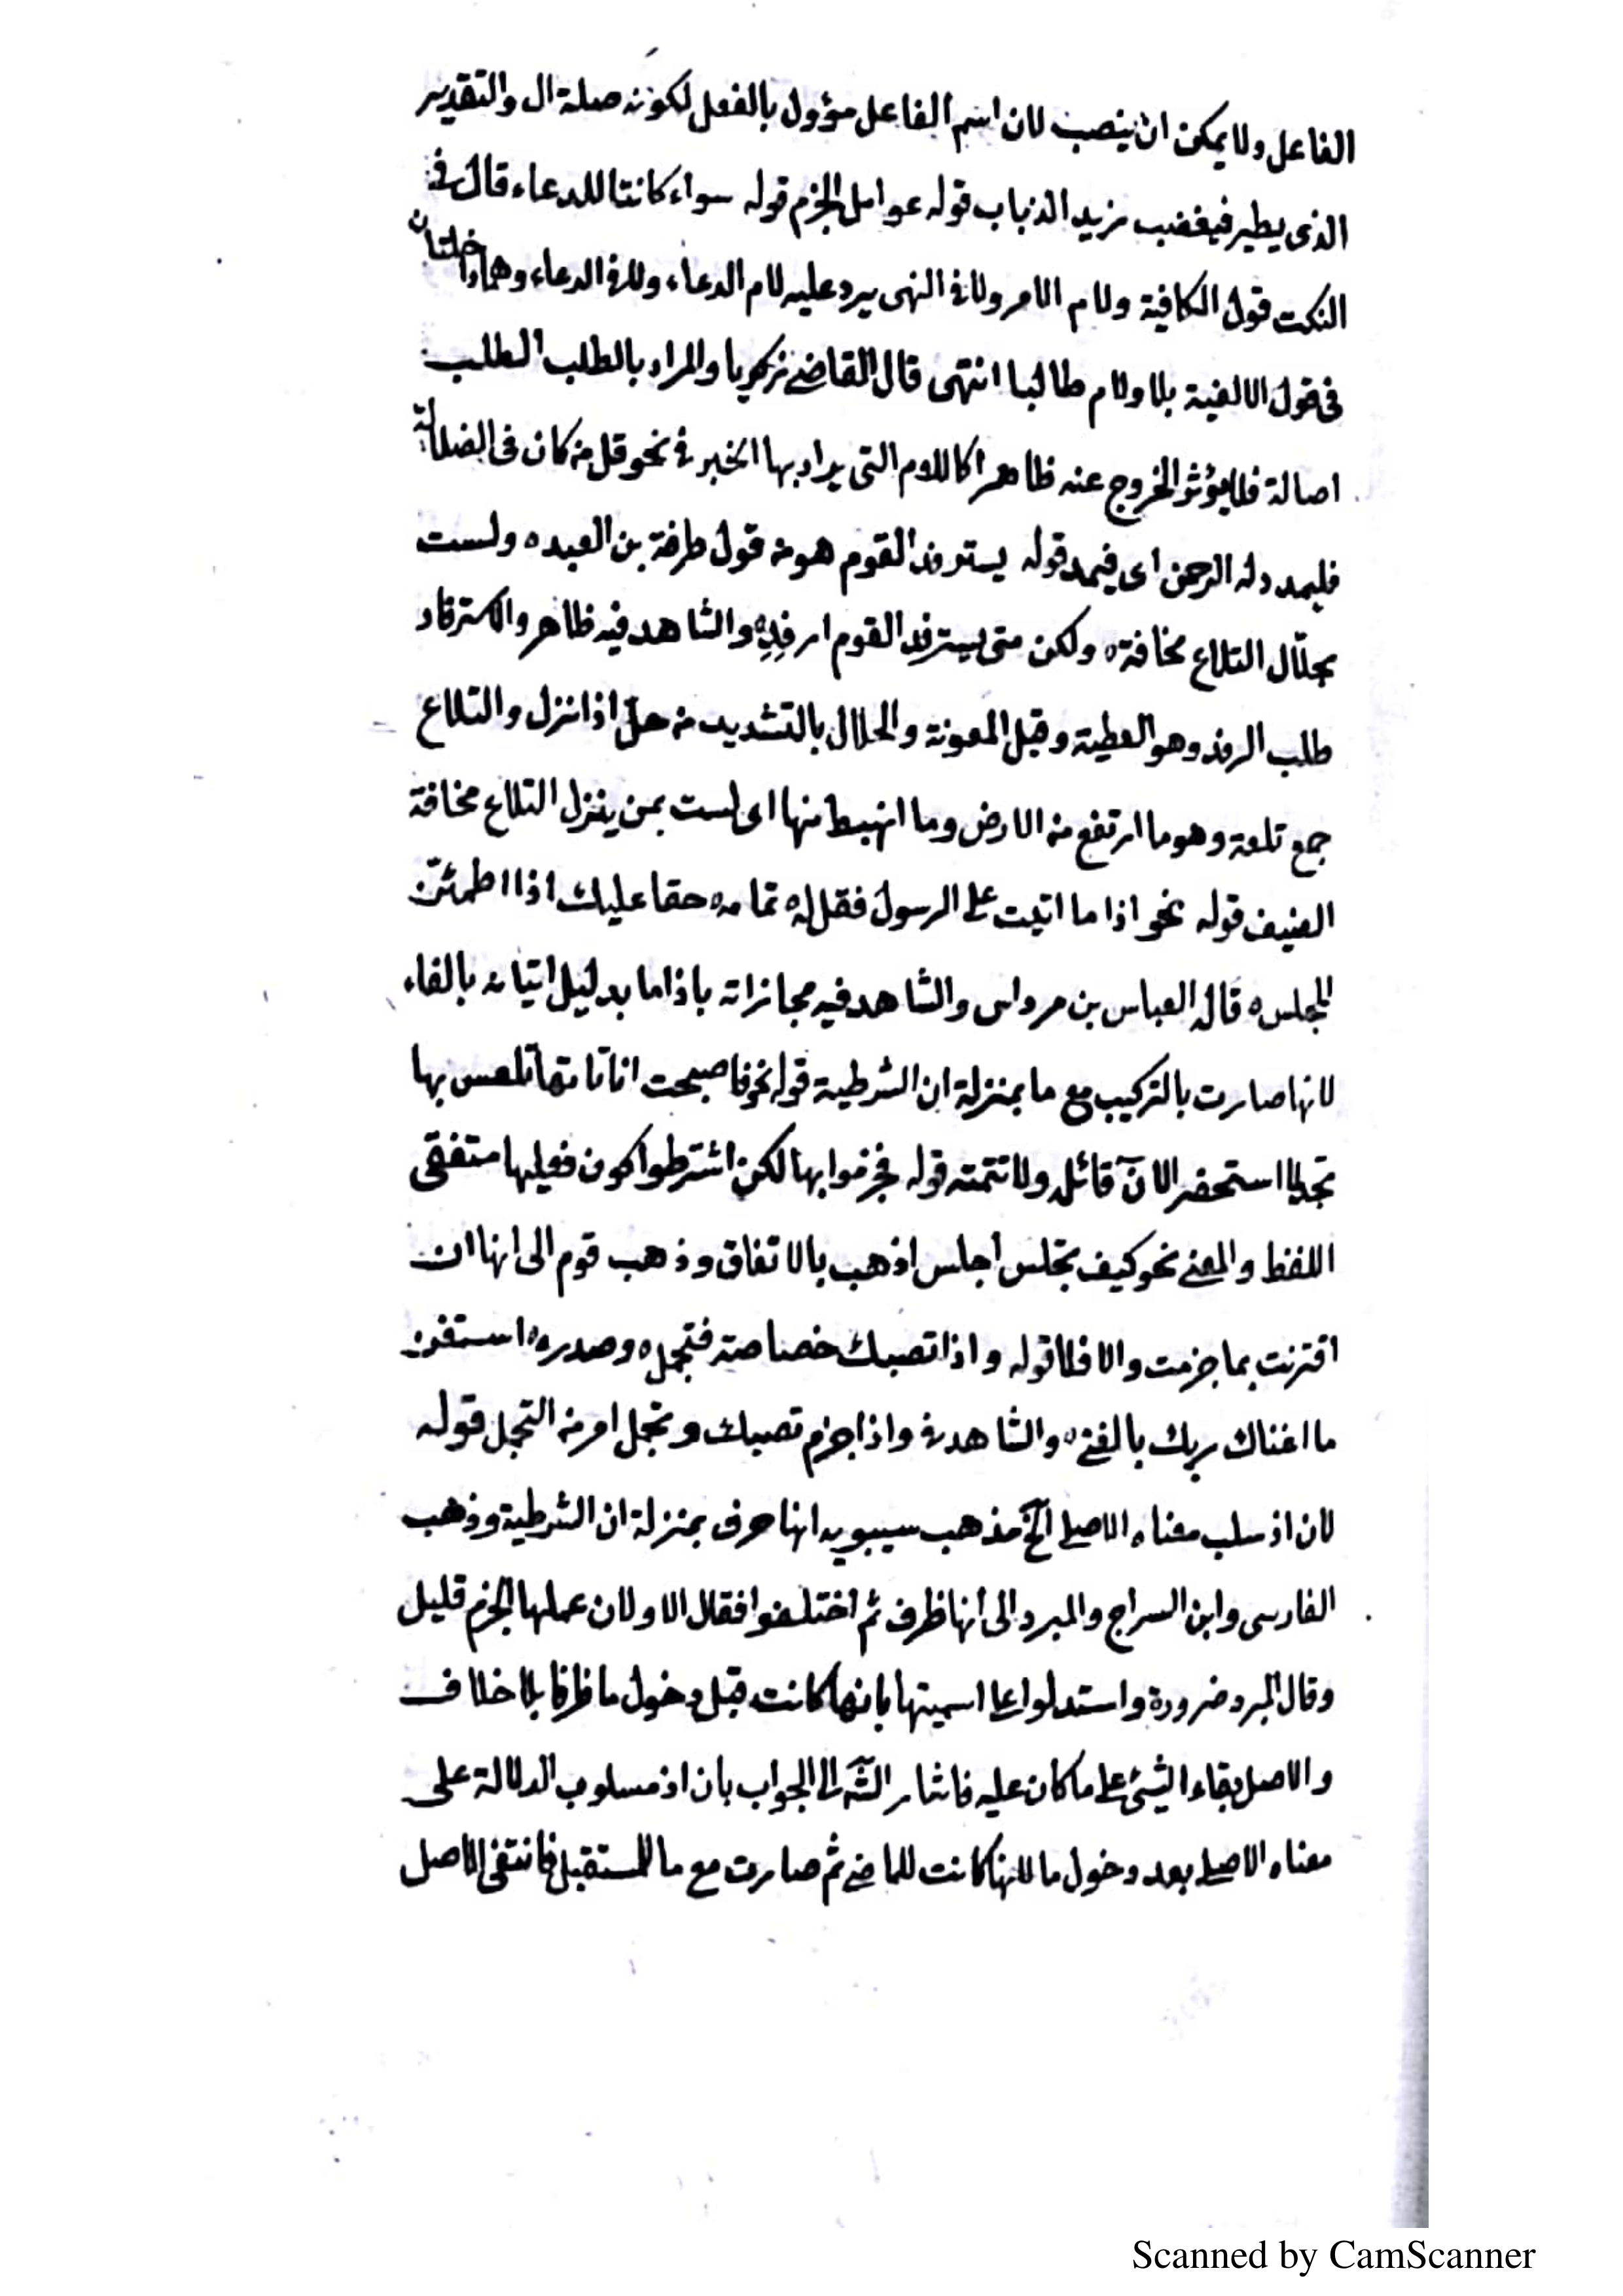 الفاعل ولا يمكن ان ينصب لان اسم الفاعل مؤول بالفعل لكونه صلة ال والتقدير
الذى يطير فيغضب زيد الذباب قوله عوامل الجزم قوله سواء كانتا للدعاء قال فى
النكت قول الكافية ولام الامر ولا فى النهى يرد عليه لام الدعاء ولا فى الدعاء وهما داخلتان
فى قول الالفية بلا ولام طالبا انتهى قال القاضى زكريا والمراد بالطلب الطلب
اصالة فلا يؤثر الخروج عنه ظاهرا كاللام التى يراد بها الخبر فى نحو قل من كان فى الضلالة
فليمدد له الرحمن اى فيمد قوله يسترفد القوم هو من قول طرفة بن العبد ه ولست
بحلّال التلاع مخافة ه ولكن متى يسترفد القوم ارفِدِه والشاهد فيه ظاهر والاسترفاد
طلب الرفد وهو العطية وقيل المعونة والحلال بالتشديد من حلّ اذا نزل والتلاع
جمع تلعة وهو ما ارتفع من الارض وما انهبط منها اى لست بمن ينزل التلاع مخافة
الضيف قوله نحو اذا ما اتيت على الرسول فقل له ه تمامه حقا عليك اذا اطمئنّ
المجلس ه قاله العباس بن مرداس والشاهد فيه مجازاته باذاما بدليل اتيانه بالفاء
لانها صارت بالتركيب مع ما بمنزلة ان الشرطية قوله نحو فاصبحت انا تاتها تلتبس بها
تجد لم استحضر الآن قائله ولا تتمته قوله فجزموا بها لكن اشترطوا كون فعليها متفقى
اللفظ والمعنى نحو كيف تجلس اجلس اذهب بالاتفاق وذهب قوم الى انها ان
اقترنت بما جزمت والا فلا قوله واذا تصبك خصاصة فتجمل ه وصدره ه استغن
ما اغناك ربك بالغنى ه والشاهد فى واذا جزم تصبك وتجمل امر من التجمل قوله
لان اذ سلب معناه الاصلى الخ مذهب سيبويه انها حرف بمنزلة ان الشرطية وذهب
الفارسى وابن السراج والمبرد الى انها ظرف ثم اختلفوا فقال الاولان عملها الجزم قليل
وقال المبرد ضرورة واستدلوا على اسميتها بانها كانت قبل دخول ما ظرفا بلا خلاف
والاصل بقاء الشيئ على ما كان عليه فاشار الش الى الجواب بان اذ مسلوب الدلالة على
معناه الاصلى بعد دخول ما لانها كانت للماضى ثم صارت مع ما للمستقبل فانتفى الاصل
Scanned by CamScanner